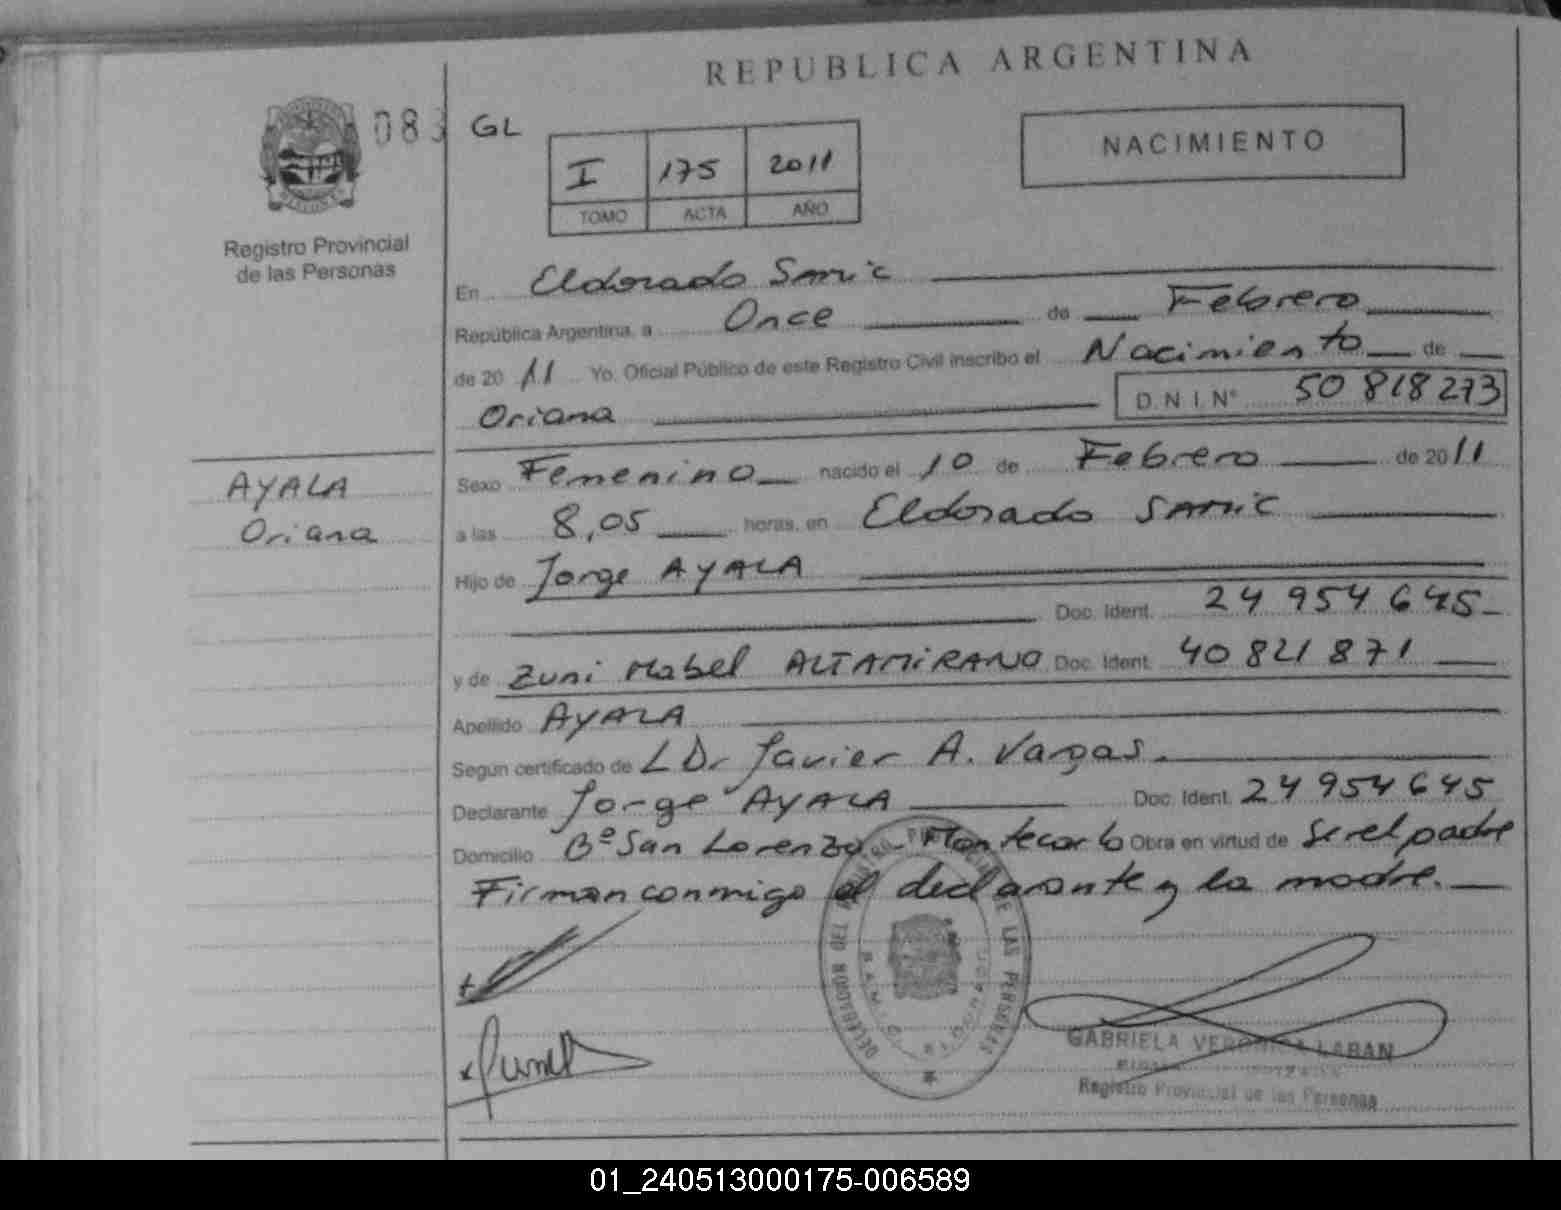 REPUBLICA ARGENTINA
083 GL
NACIMIENTO
I 175 2011
TOMO ACTA AÑO
Registro Provincial
de las Personas
En Eldorado Samic
República Argentina, a Once de Febrero
de 2011 Yo, Oficial Público de este Registro Civil inscribo el Nacimiento de
Oriana D.N.I.Nº 50 818 273
AYALA
Oriana
Sexo Femenino nacido el 10 de Febrero de 2011
a las 8,05 horas, en Eldorado Samic
Hijo de Jorge AYALA
Doc. Ident. 24 954 645
y de Zuni Mabel ALTAMIRANO Doc. Ident. 40 821 871
Apellido AYALA
Según certificado de L Dr Javier A. Vargas.
Declarante Jorge AYALA Doc. Ident. 24 954 645
Domicilio Bº San Lorenzo - Montecarlo Obra en virtud de Ser el padre
Firman conmigo el declarante y la madre.
DELEGACION DEL REGISTRO PROVINCIAL DE LAS PERSONAS
S.A.M.I.C. ELDORADO
GABRIELA VERONICA LABAN
Registro Provincial de las Personas
01_240513000175-006589